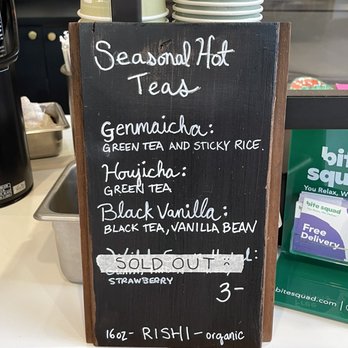 Seasonal Hot
Teas
Genmaicha:
GREEN TEA AND STICKY RICE.
Houjicha:
GREEN TEA
Black Vanilla:
BLACK TEA, VANILLA BEAN
SOLD OUT :(
STRAWBERRY
3-
16oz- RISHI- organic
bite
squad
You Relax, W
bite squad
Free
Delivery
bitesquad.com